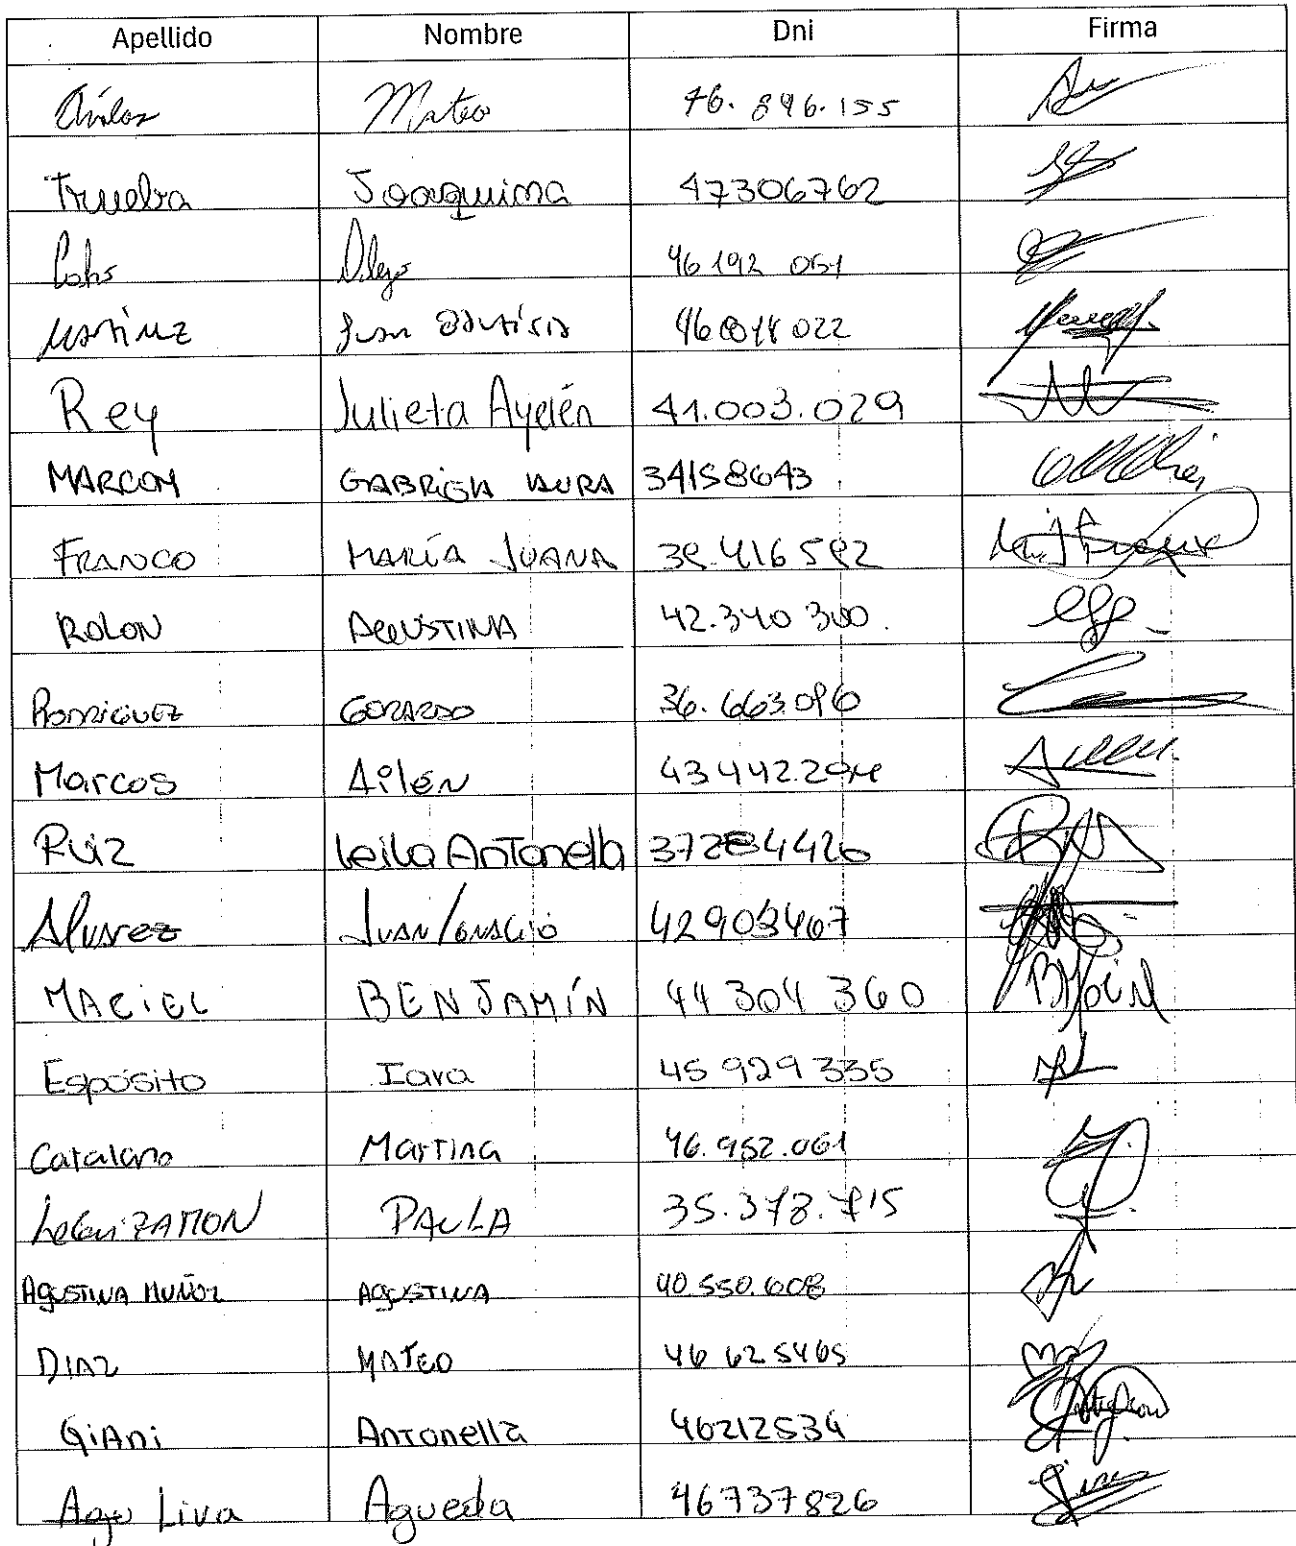 Apellido Nombre Dni Firma
Avilas Mateo 46.896.155
Trueba Joaquina 47306762
Diego 46 192 051
Martinez Juan Bautista 022
Rey Julieta Ayelén 41.003.029
MARCON GABRIELA LAURA 34158643
FRANCO MARÍA JUANA 38.416 582
ROLON AGUSTINA 42.340 300.
RODRIGUEZ GERARDO 36.663.096
Marcos Ailén 43 442.294
Ruiz Leila Antonella 37284426
Alvarez JUAN IGNACIO 42903467
MACIEL BENJAMÍN 44 304 360
Esposito Iara 45 929 335
Catalano Martina 46.952.061
LeGuiZAMON PAULA 35.378.715
AGUSTINA MUÑOZ AGUSTINA 40.550.608
DIAZ MATEO 46 625465
GiAni Antonella 46212534
Ago Liva Agueda 46737826